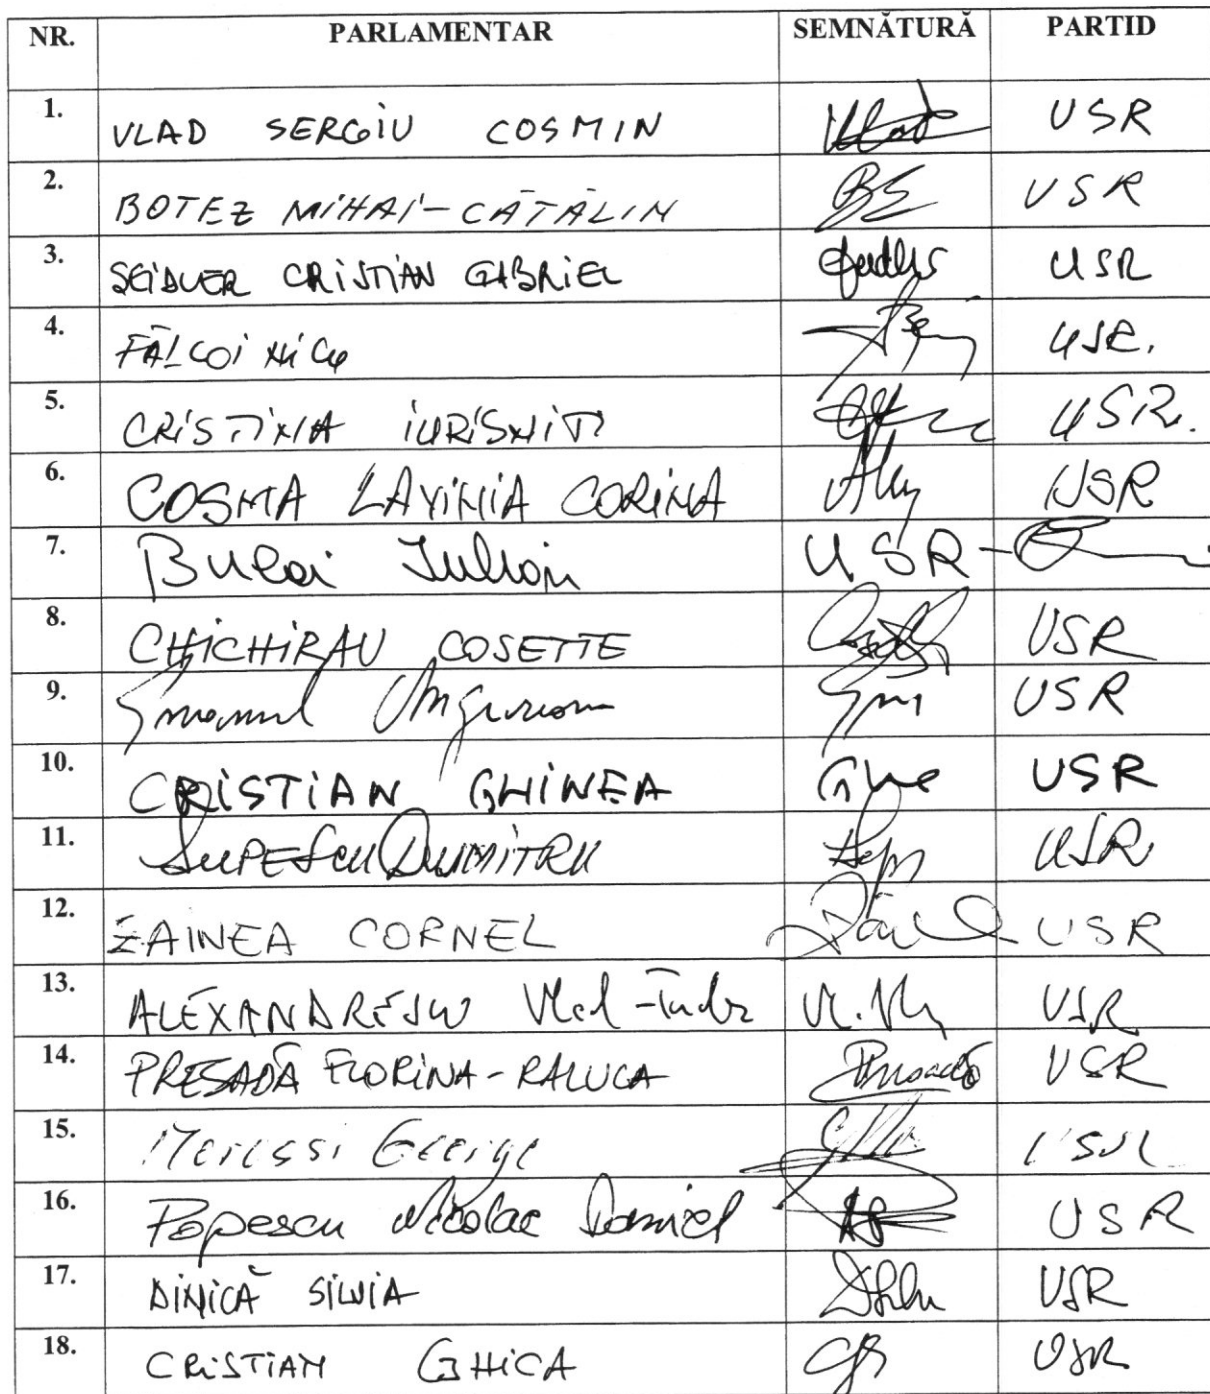 NR. PARLAMENTAR SEMNĂTURĂ PARTID
1. VLAD SERGIU COSMIN Vlad USR
2. BOTEZ MIHAI-CĂTĂLIN USR
3. SEIDLER CRISTIAN GABRIEL USR
4. FĂLCOI NICU USR.
5. CRISTINA IURISNITI USR.
6. COSMA LAVINIA CORINA USR
7. Bulai Iulian USR-
8. CHICHIRĂU COSETTE USR
9. Emanuel Ungureanu USR
10. CRISTIAN GHINEA USR
11. LUPESCU DUMITRU USR
12. ZAINEA CORNEL USR
13. ALEXANDRESCU Vlad-Tudor USR
14. PRESADĂ FLORINA-RALUCA USR
15. George USR
16. Popescu Nicolae Daniel USR
17. DINICĂ SILVIA USR
18. CRISTIAN GHICA USR